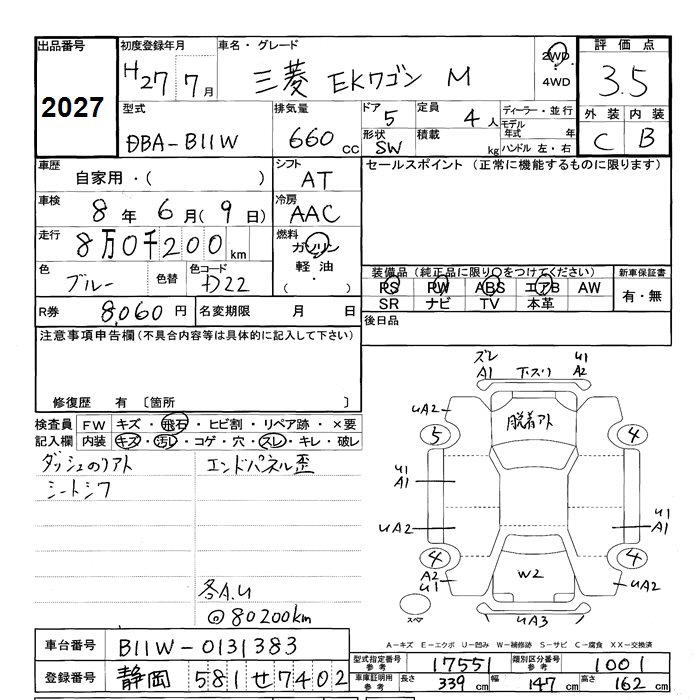 出品番号 2027
初度登録年月 H27 7月
車名・グレード 三菱 EKワゴン M
2WD
4WD
評価点 3.5
外装 C 内装 B
型式 DBA-B11W
排気量 660 cc
ドア 5
形状 SW
定員 4 人
積載 kg
ディーラー・並行
モデル年式 年
ハンドル 左・右
車歴 自家用・( )
シフト AT
セールスポイント (正常に機能するものに限ります)
車検 8年 6月(9日)
冷房 AAC
走行 8万0千200km
燃料 ガソリン
軽油
( ・ )
色 ブルー 色替
色コード D22
装備品(純正品に限り○をつけてください)
PS PW ABS エアB AW
SR ナビ TV 本革
新車保証書
有・無
R券 8,060円
名変期限 月 日
後日品
注意事項申告欄(不具合内容等は具体的に記入して下さい)
修復歴 有 〔箇所 〕
検査員 FW キズ・飛石・ヒビ割・リペア跡・×要
記入欄 内装 キズ・汚レ・コゲ・穴・スレ・キレ・破レ
ダッシュのリアト
シートシワ
エンドパネル歪
各A.U
@80200km
ズレ
A1
下スリ
U1
A2
UA2
脱着アト
5
4
U1
A1
UA2
U1
A1
4
4
A2
U1
W2
UA2
スペア
UA3
A-キズ E-エクボ U-凹み W-補修跡 S-サビ C-腐食 XX-交換済
車台番号 B11W-0131383
登録番号 静岡 581 せ 7402
型式指定番号 参考 17551
類別区分番号 参考 1001
車庫証明用 参考 長さ 339cm 幅 147cm 高さ 162cm